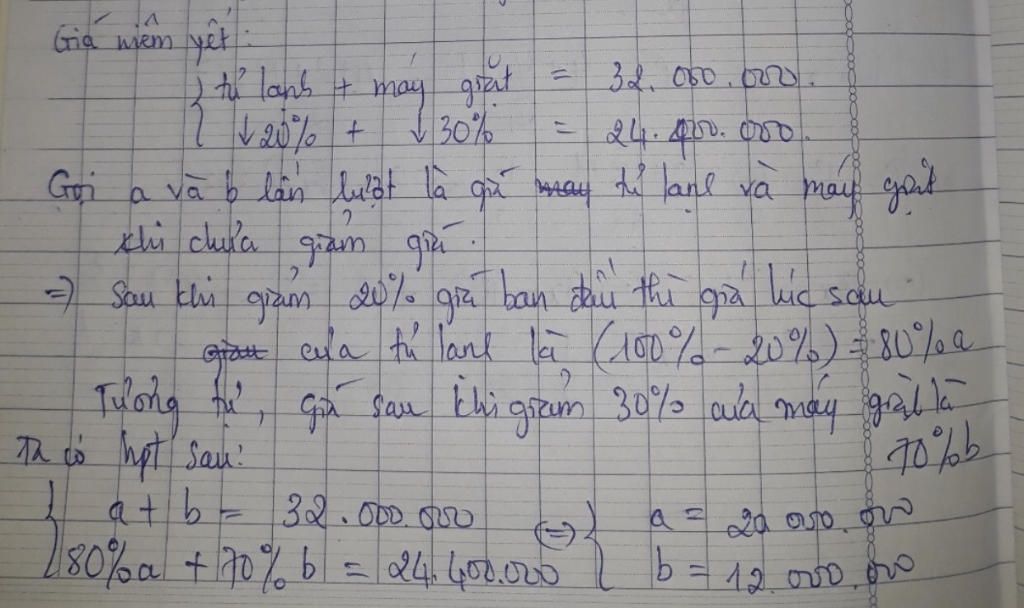 Giá niêm yết:
{ tủ lạnh + máy giặt = 32.000.000.
↓20% + ↓30% = 24.400.000.
Gọi a và b lần lượt là giá may tủ lạnh và máy giặt
khi chưa giảm giá.
=) Sau khi giảm 20% giá ban đầu thì giá lúc sau
của tủ lạnh là (100% - 20%) = 80%a
Tương tự, giá sau khi giảm 30% của máy giặt là
70%b
Ta có hpt sau:
{ a + b = 32.000.000 (=) { a = 20.000.000
80%a + 70%b = 24.400.000 b = 12.000.000